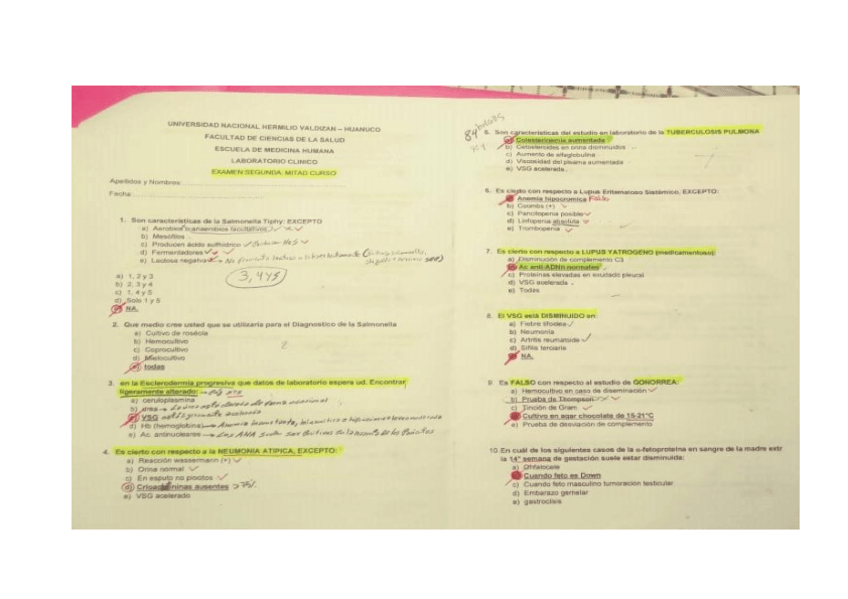 UNIVERSIDAD NACIONAL HERMILIO VALDIZAN – HUANUCO
FACULTAD DE CIENCIAS DE LA SALUD
ESCUELA DE MEDICINA HUMANA
LABORATORIO CLINICO
EXAMEN SEGUNDA MITAD CURSO
Apellidos y Nombres:
Fecha:
1. Son características de la Salmonella Tiphy: EXCEPTO
a) Aerobios anaerobios facultativos
b) Mesófilos
c) Producen ácido sulfhídrico
d) Fermentadores
e) Lactosa negativa
3, 4 y 5
a) 1, 2 y 3
b) 2, 3 y 4
c) 1, 4 y 5
d) Solo 1 y 5
NA.
2. Que medio cree usted que se utilizaría para el Diagnostico de la Salmonella
a) Cultivo de roséola
b) Hemocultivo
c) Coprocultivo
d) Mielocultivo
todas
3. en la Esclerodermia progresiva que datos de laboratorio espera ud. Encontrar
ligeramente alterado:
a) ceruloplasmina
b) urea
VSG
d) Hb (hemoglobina)
e) Ac. antinucleares
4. Es cierto con respecto a la NEUMONIA ATIPICA, EXCEPTO:
a) Reacción wassermann (+)
b) Orina normal
c) En esputo no piocitos
d) Crioaglutininas ausentes
e) VSG acelerado
84
5. Son características del estudio en laboratorio de la TUBERCULOSIS PULMONA
Colesterolemia aumentada
b) Cetosteroides en orina disminuidos
c) Aumento de alfaglobulina
d) Viscosidad del plasma aumentada
e) VSG acelerada
6. Es cierto con respecto a Lupus Eritematoso Sistémico, EXCEPTO:
Anemia hipocromica Falso
b) Coombs (+)
c) Pancitopenia posible
d) Linfopenia absoluta
e) Trombopenia
7. Es cierto con respecto a LUPUS YATROGENO (medicamentoso):
a) Disminución de complemento C3
Ac anti-ADNn normales
c) Proteínas elevadas en exudado pleural
d) VSG acelerada
e) Todas
8. El VSG está DISMINUIDO en:
a) Fiebre tifoidea
b) Neumonía
c) Artritis reumatoide
d) Sífilis terciaria
NA.
9. Es FALSO con respecto al estudio de GONORREA:
a) Hemocultivo en caso de diseminación
b) Prueba de Thompson
c) Tinción de Gram
Cultivo en agar chocolate de 15-21°C
e) Prueba de desviación de complemento
10. En cuál de los siguientes casos de la α-fetoproteína en sangre de la madre extr
la 14° semana de gestación suele estar disminuida:
a) Onfalocele
Cuando feto es Down
c) Cuando feto masculino tumoración testicular
d) Embarazo gemelar
e) gastroclisis